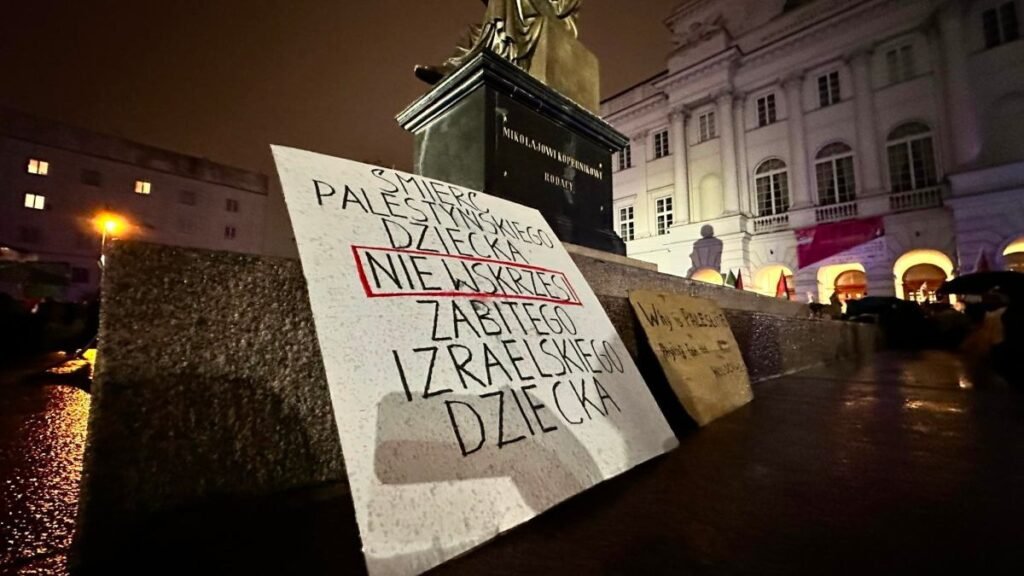 MIKOŁAJOWI KOPERNIKOWI
RODACY
ŚMIERĆ
PALESTYŃSKIEGO
DZIECKA
NIE WSKRZESI
ZABITEGO
IZRAELSKIEGO
DZIECKA
Why is